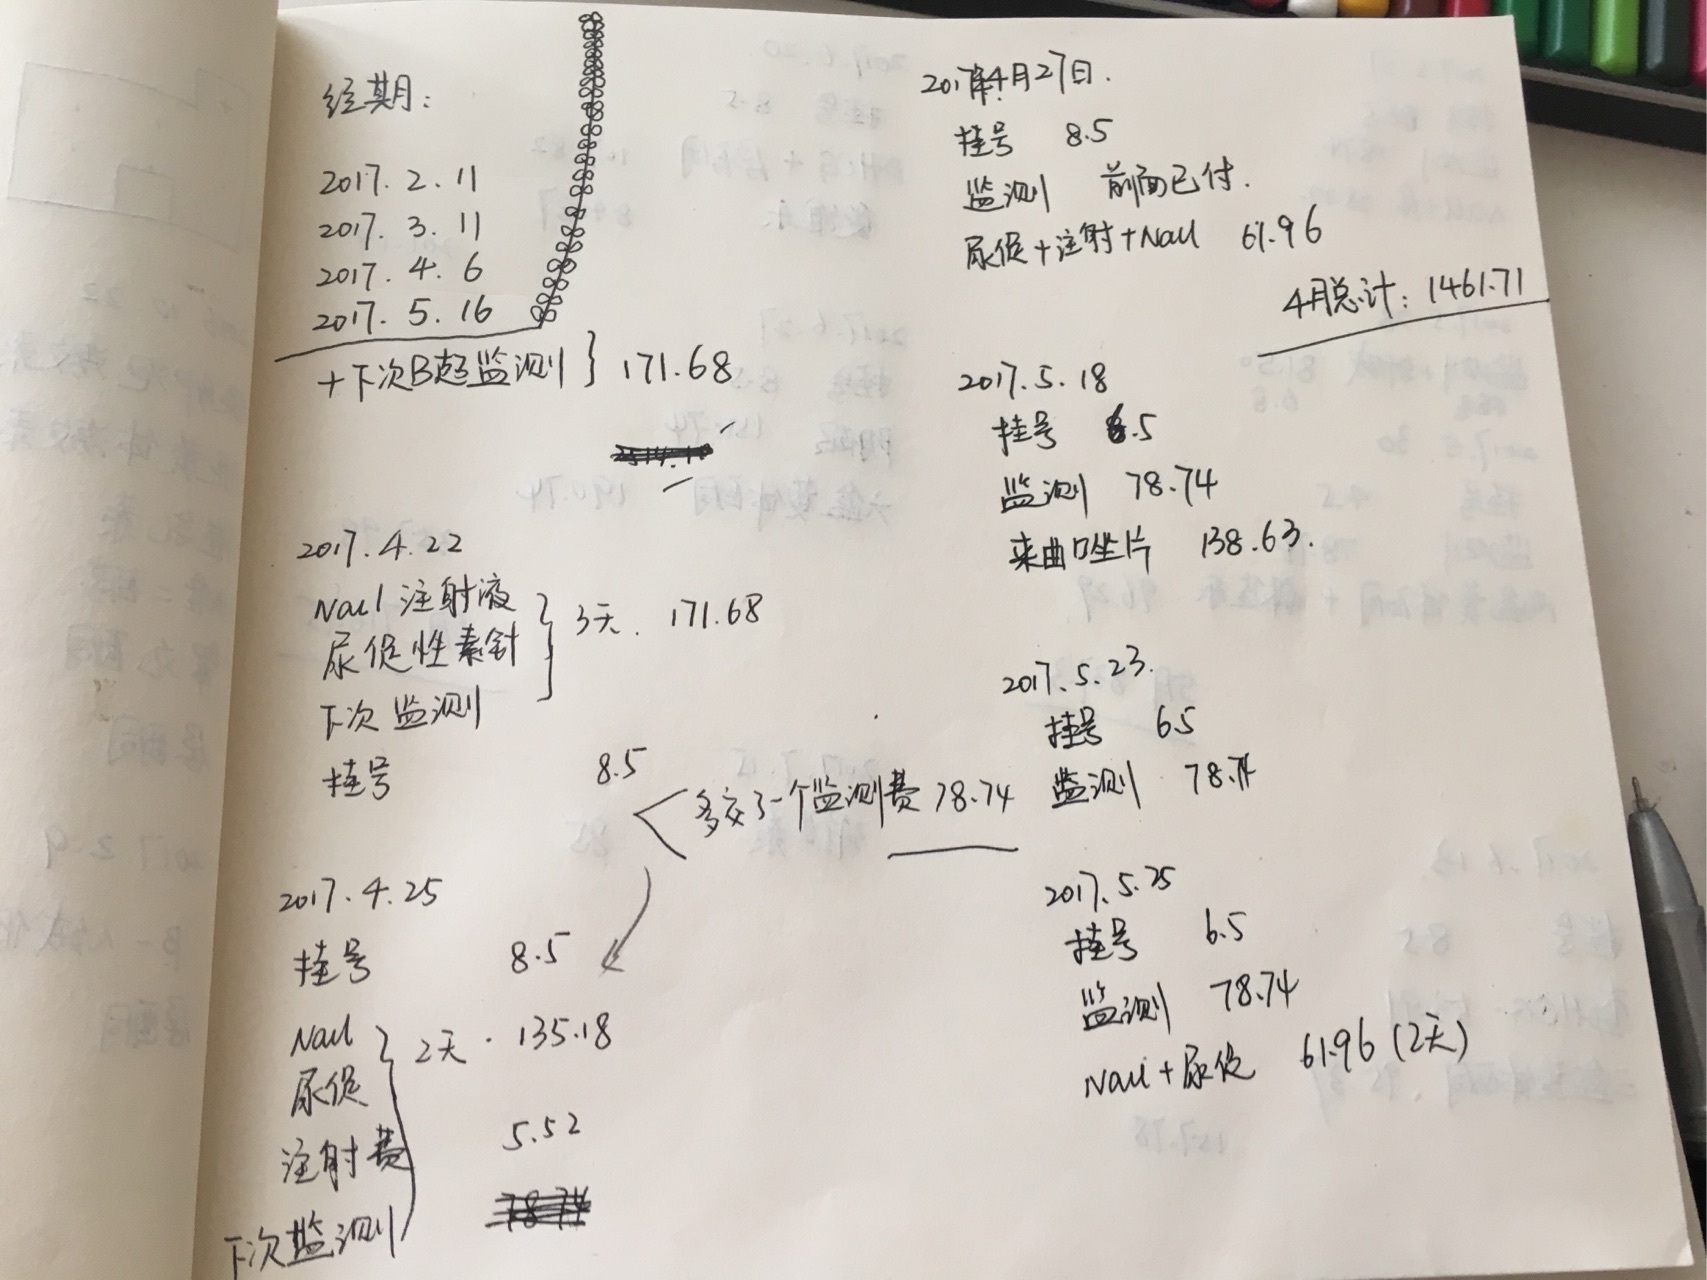 经期：
2017.2.11
2017.3.11
2017.4.6
2017.5.16
+下次B超监测 } 171.68
2017.4.22
Nacl 注射液
尿促性素针
下次监测
3天. 171.68
挂号 8.5
多交了一个监测费 78.74
2017.4.25
挂号 8.5
Nacl
尿促
注射费
下次监测
2天. 135.18
5.52
2017年4月27日.
挂号 8.5
监测 前面已付.
尿促+注射+Nacl 61.96
4月总计: 1461.71
2017.5.18
挂号 6.5
监测 78.74
来曲唑片 138.63.
2017.5.23.
挂号 6.5
监测 78.74
2017.5.25
挂号 6.5
监测 78.74
Nacl+尿促 61.96 (2天)